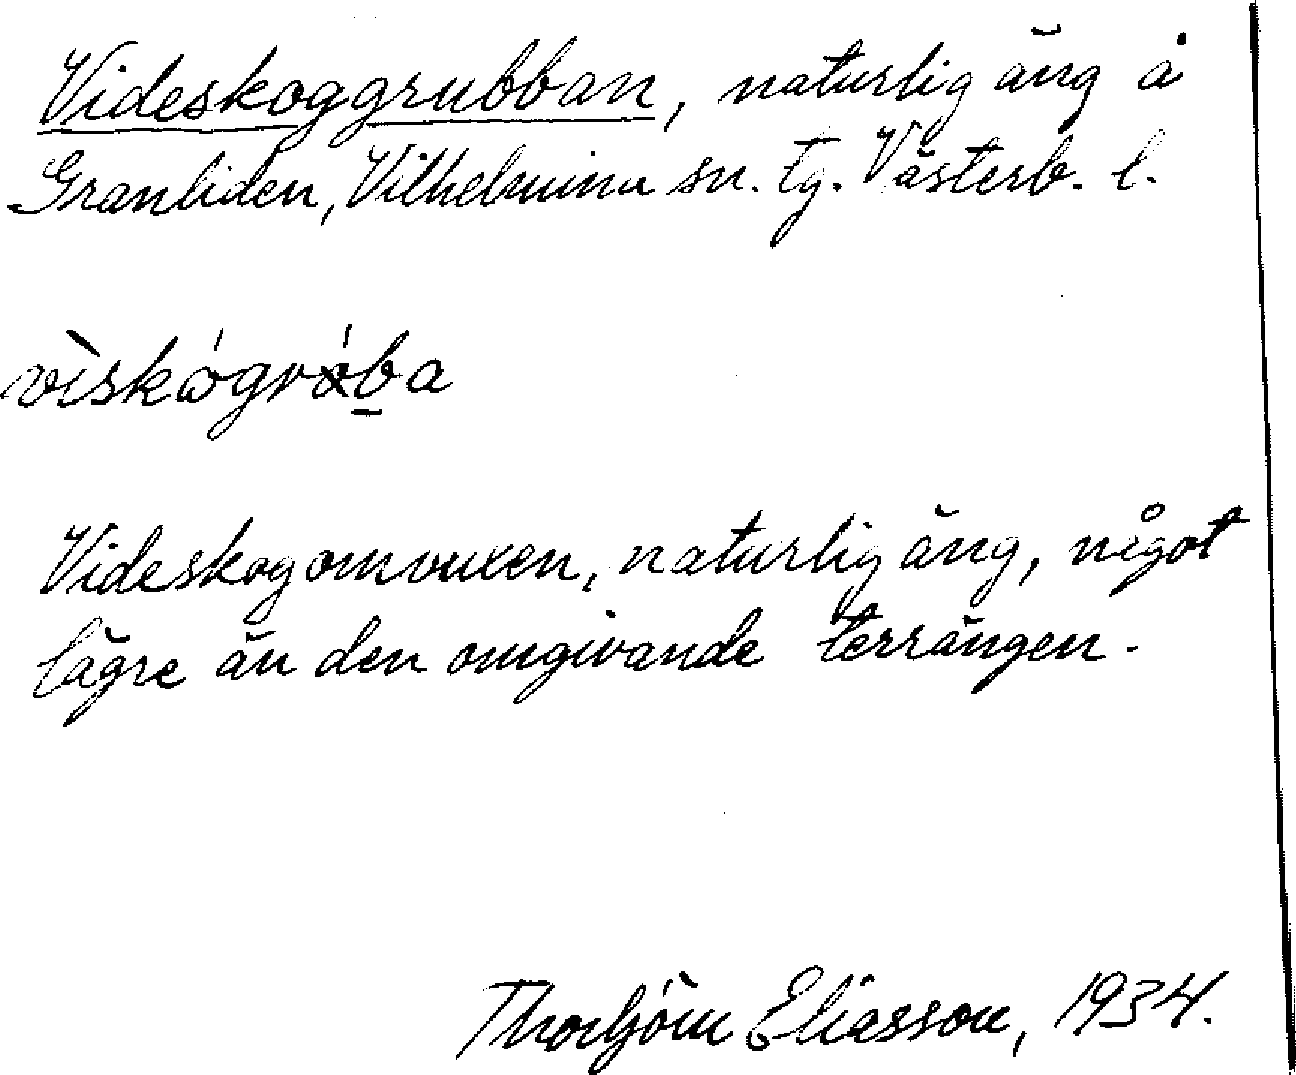 Videskoggrubban, naturlig äng å
Granliden, Vilhelmina sn. tg. Västerb. l.
Videskogomvuxen, naturlig äng, något
lägre än den omgivande terrängen.
Thorbjörn Eliasson, 1934.